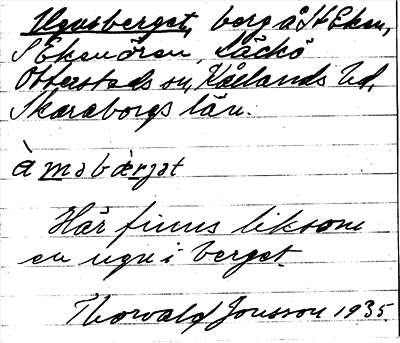 Ugnsberget, berg å St Eken,
S Ekenören, Läckö
Otterstads sn, Kållands hd,
Skaraborgs län.
Här finns liksom
en ugn i berget.
Thorvald Jonsson 1935.